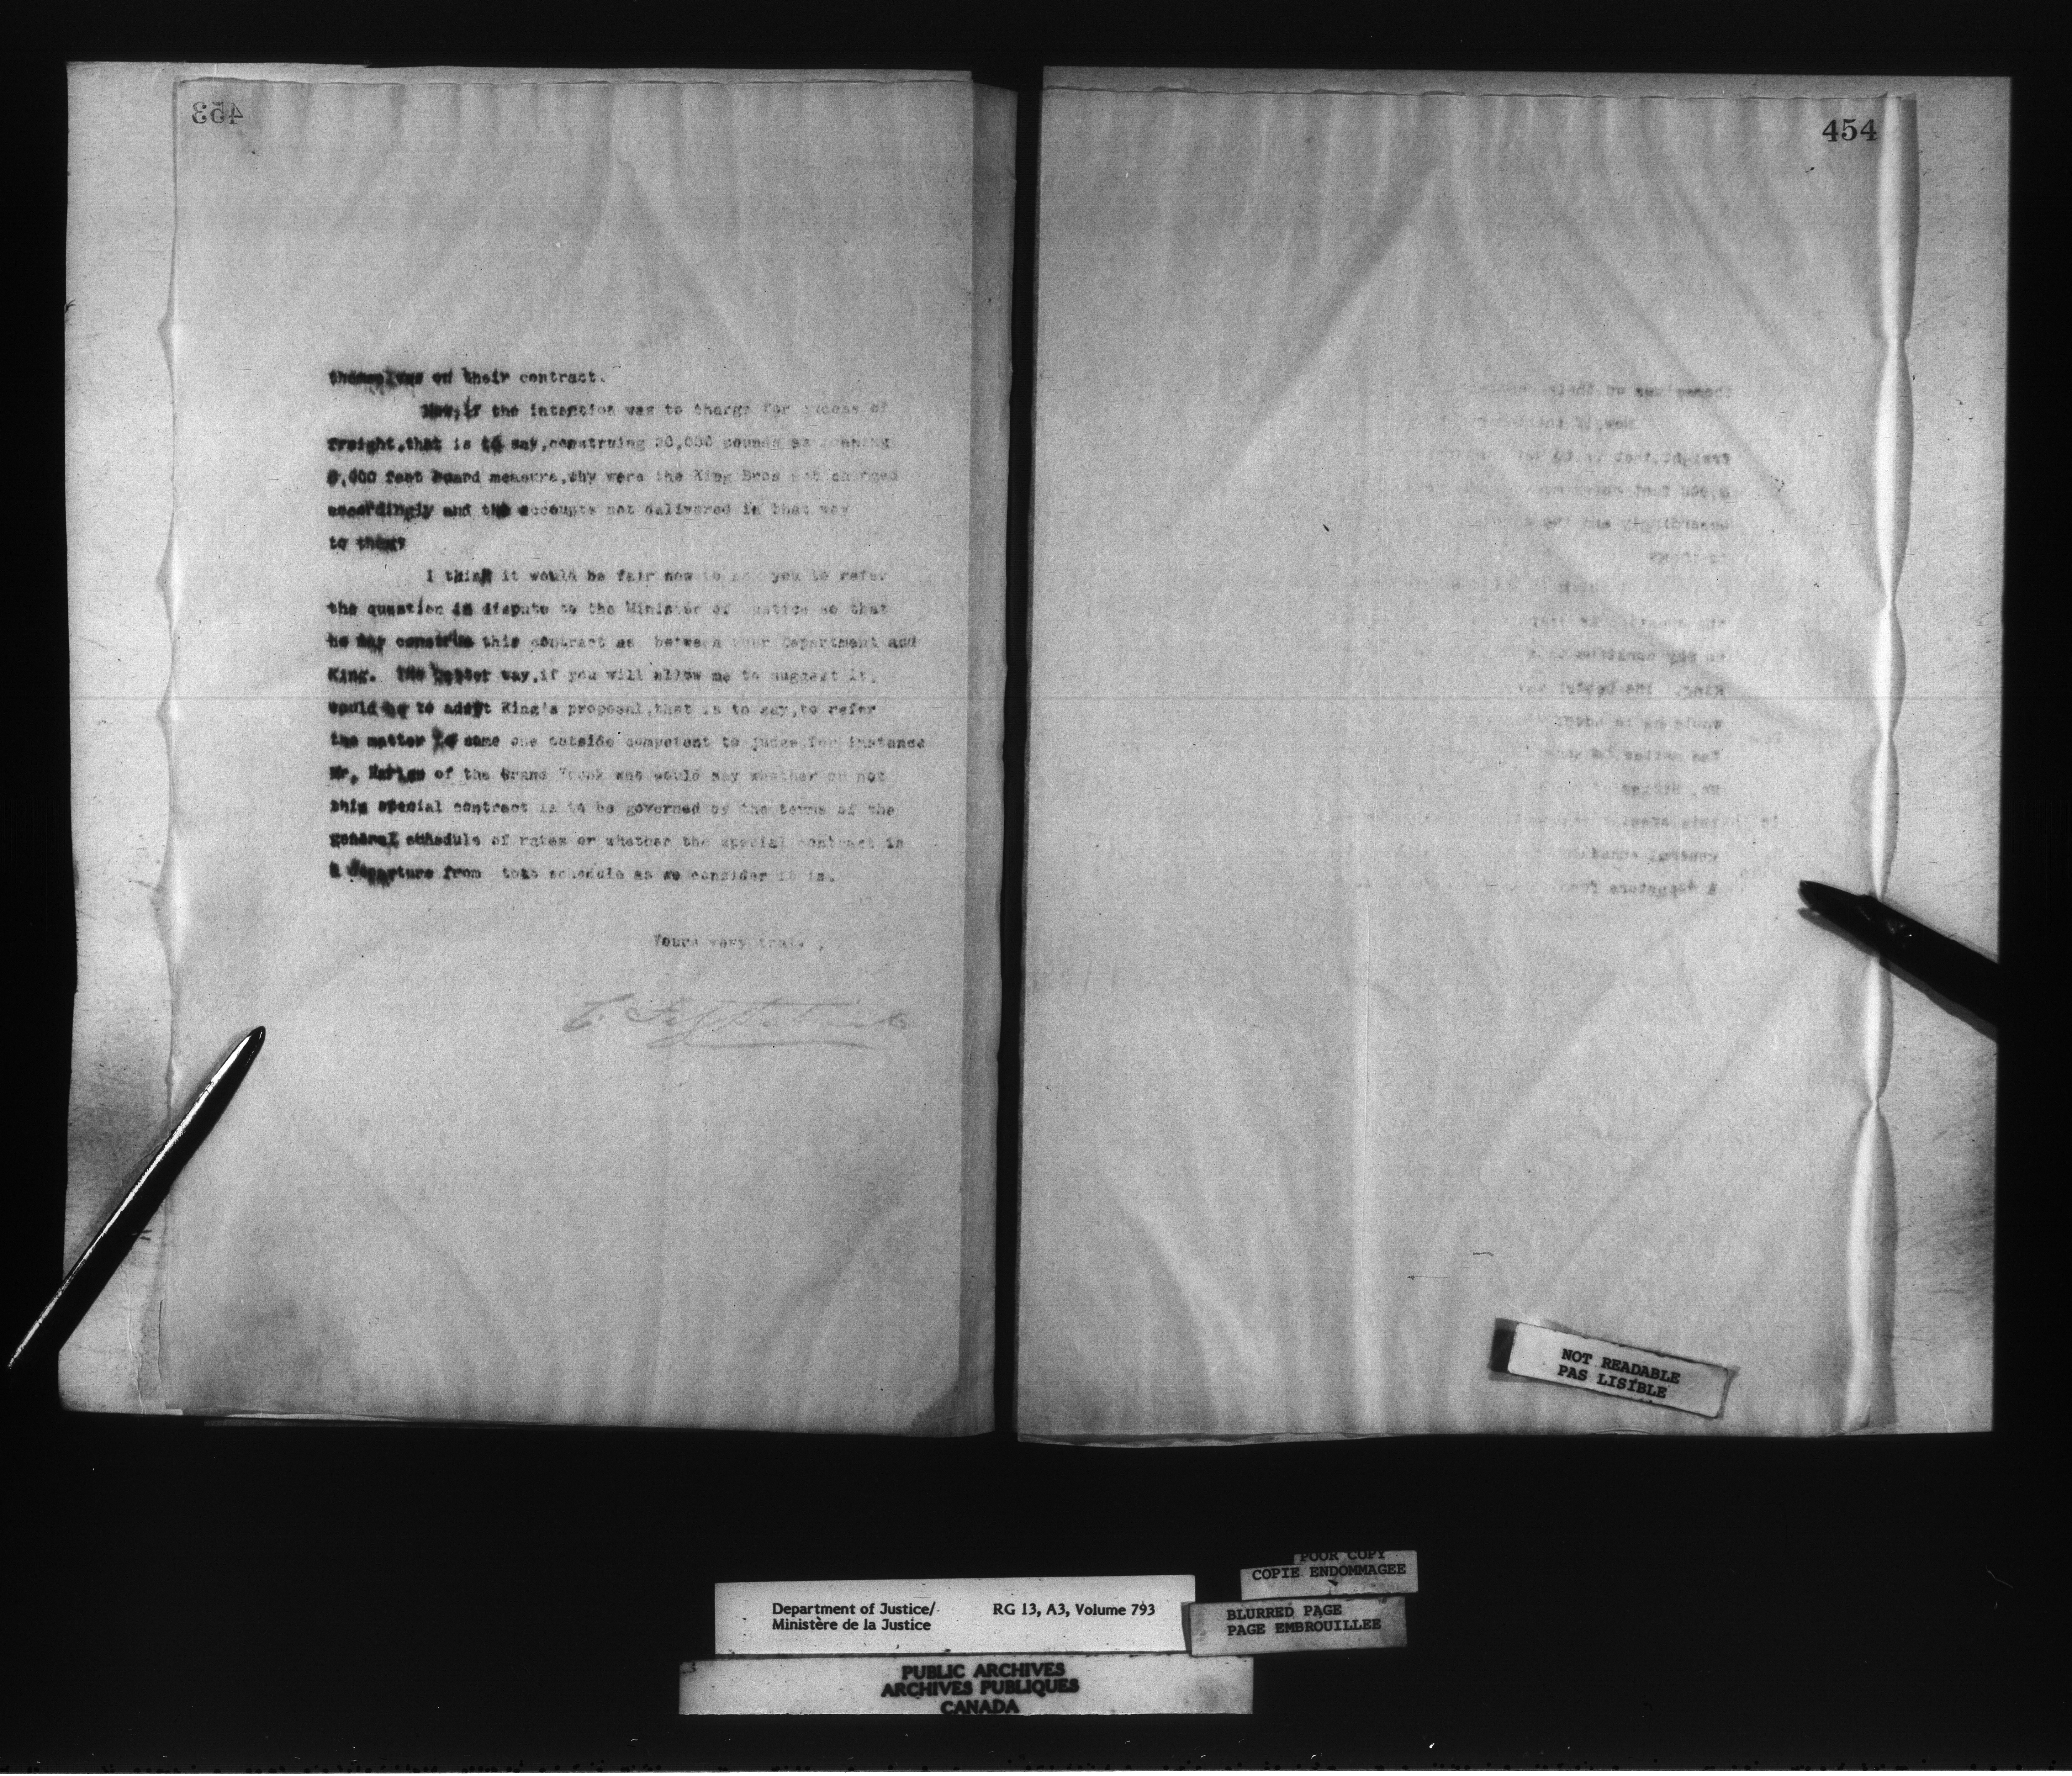 453
themselves on their contract.
Now, if the intention was to charge for excess of
freight, that is to say, construing 20,000 pounds as meaning
feet board measure, why were the King Bros not charged
accordingly and the accounts not delivered in that way
to them?
I think it would be fair now to you to refer
the question in dispute to the Minister of Justice so that
he may construe this contract as between your Department and
King. The better way, if you will allow me to suggest it,
would be to adopt King's proposal, that is to say, to refer
the matter to some one outside competent to judge for instance
Mr. of the Grand Trunk who would say whether or not
this special contract is to be governed by the terms of the
general schedule of rates or whether the special contract is
a departure from that schedule as we consider it is.
Yours very truly,
454
NOT READABLE
PAS LISIBLE
POOR COPY
COPIE ENDOMMAGEE
BLURRED PAGE
PAGE EMBROUILLEE
Department of Justice/ RG 13, A3, Volume 793
Ministère de la Justice
PUBLIC ARCHIVES
ARCHIVES PUBLIQUES
CANADA